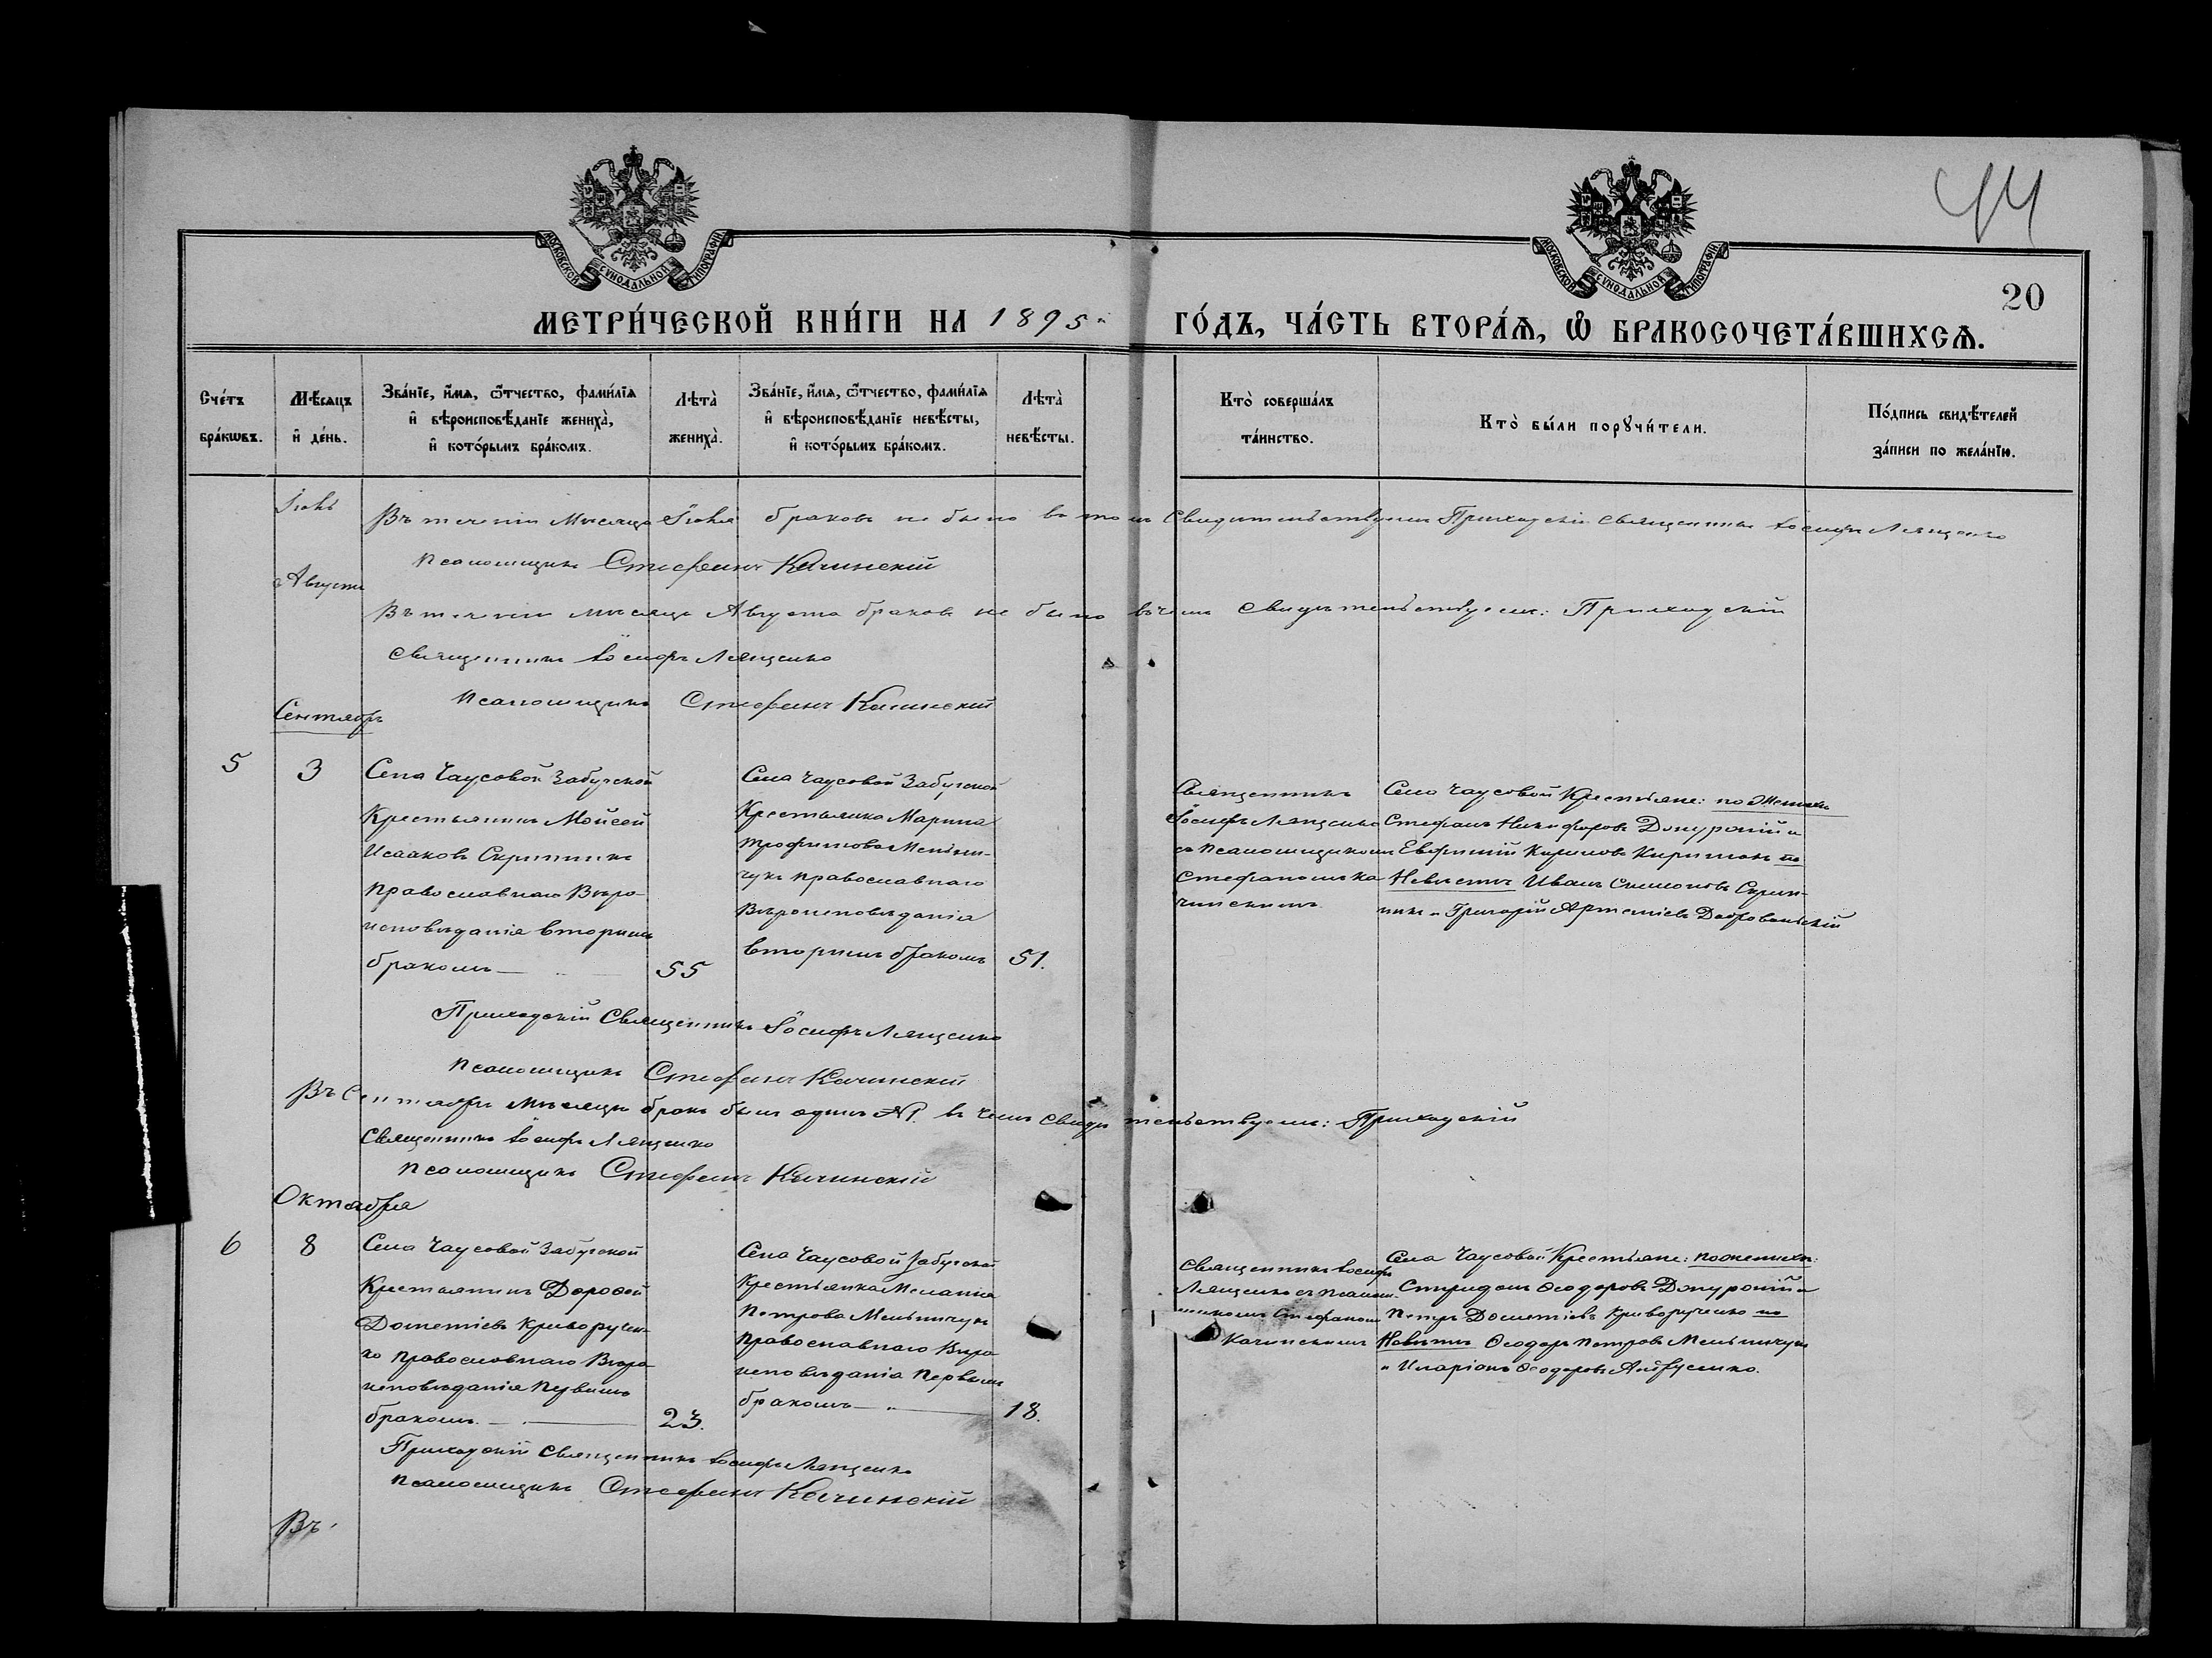 44
МОСКОВСКОЙ СѴНОДАЛЬНОЙ ТИПОГРАФІИ
МОСКОВСКОЙ СѴНОДАЛЬНОЙ ТИПОГРАФІИ
20
МЕТРИ́ЧЕСКОЙ КНИ́ГИ НА 1895й ГО́ДЪ, ЧА́СТЬ ВТОРА́Ѧ, Ѡ҆ БРАКОСОЧЕТА́ВШИХСѦ.
Сче́тъ бра́кѡвъ.
Мѣ́сяцъ и҆ де́нь.
Зва́нїе, и҆́мѧ, ѻ҆́тчество, фами́лїѧ и҆ вѣроисповѣ́данїе жениха̀, и҆ кото́рымъ бра́комъ.
Лѣта̀ жениха̀.
Зва́нїе, и҆́мѧ, ѻ҆́тчество, фами́лїѧ и҆ вѣроисповѣ́данїе невѣ́сты, и҆ кото́рымъ бра́комъ.
Лѣта̀ невѣ́сты.
Кто̀ соверша́лъ та́инство.
Кто̀ бы́ли порꙋчи́тели.
По́дпись свидѣ́телей за́писи по жела́нїю.
Іюль
Въ теченіи Мѣсяца Іюля браковъ не было въ томъ Свидѣтельствуемъ Приходскій Священникъ Іосифъ Лященко
Псаломщикъ Стефанъ Качинскій
Августъ
Въ теченіи мѣсяца Августа браковъ не было въ чемъ свидѣтельствуемъ: Приходскій
Священникъ Іосифъ Лященко
Псаломщикъ Стефанъ Качинскій
Сентябрь
5
3
Села Чаусовой Забугской
Крестьянинъ Мойсей
Исааковъ Скрипникъ
Православнаго Вѣро-
исповѣданія вторымъ
бракомъ
55
Села Чаусовой Забугской
Крестьянка Марина
Трофимова Мельни-
чукъ православнаго
Вѣроисповѣданія
вторымъ бракомъ
51.
Священникъ
Іосифъ Лященко
съ Псаломщикомъ
Стефаномъ Ка-
чинскимъ
Села Чаусовой Крестьяне: по Женихѣ
Стефанъ Никифоровъ Донурскій и
Евфимій Кириловъ Киримокъ по
Невѣстѣ Иванъ Симоновъ Скрип-
никъ и Григорій Артеміевъ Добровольскій
Приходскій Священникъ Іосифъ Лященко
Псаломщикъ Стефанъ Качинскій
Въ Сентябрѣ мѣсяцѣ бракъ былъ одинъ №1. въ чемъ свидѣтельствуемъ: Приходскій
Священникъ Іосифъ Лященко
Псаломщикъ Стефанъ Качинскій
Октября
6
8
Села Чаусовой Забугской
Крестьянинъ Дороѳей
Дометіевъ Криворучен-
ко православнаго Вѣро-
исповѣданія Первымъ
бракомъ.
23.
Села Чаусовой Забугской
Крестьянка Меланія
Петрова Мельничукъ
Православнаго Вѣро
исповѣданія Первымъ
бракомъ
18.
Священникъ Іосифъ
Лященко съ Псалом-
щикомъ Стефаномъ
Качинскимъ
Села Чаусовой Крестьяне: по женихѣ:
Спиридонъ Ѳеодоровъ Донурскій и
Петръ Дометіевъ Криворученко по
Невѣстѣ Ѳеодоръ Петровъ Мельничукъ
и Иларіонъ Ѳеодоровъ
Приходскій Священникъ Іосифъ Лященко
Псаломщикъ Стефанъ Качинскій
Въ